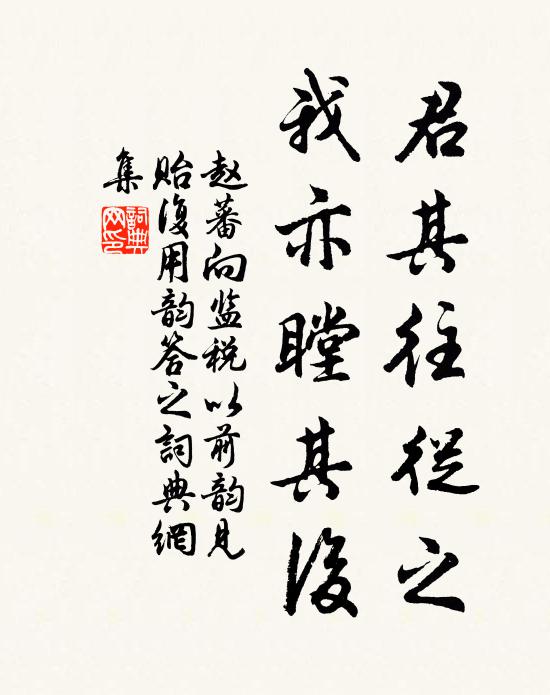 君其往從之
我亦瞠其後
赵蕃向监税以前韵见
贻復用韵答之詞典網
集
詞典
网印